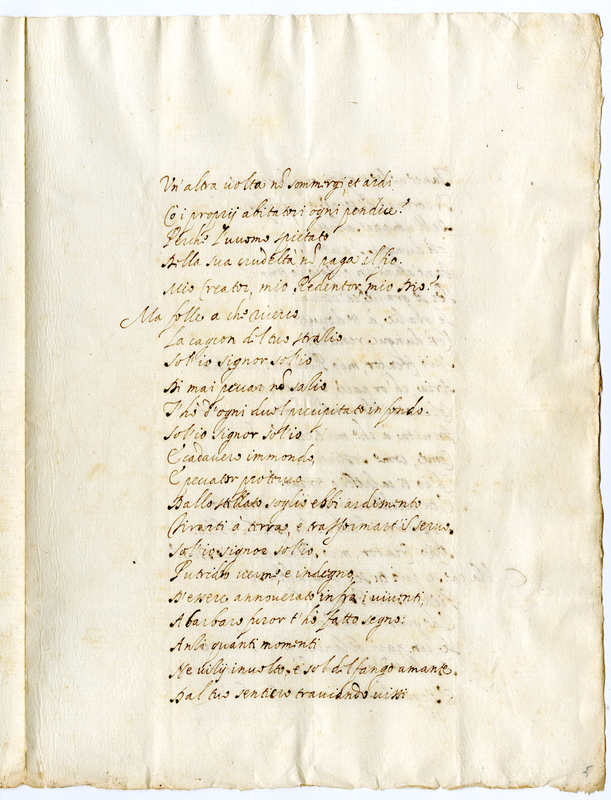 Un'altra uolta nõ sommergi, et ardi
Co i proprij abitatori ogni pendice?
Perche l'uuomo spietato
Della sua crudeltà nõ paga il fio.
Mio Creator, mio Redentor, mio Dio?
Ma folle a che ricerco
La cagion del tuo stratio
Sol'io signor sol'io
Di mai peccar nõ satio
T'hò d'ogni duol precipitato in fondo.
Sol'io signor sol'io
E cadauero immondo,
E peccator proteruo
Dallo stellato soglio ebbi ardimento
Tirarti à terra, e trasformarti in seruo.
Sol'io signor sol'io,
Putrido uerme, e indegno
D'essere annouerato infra i uiuenti,
A barbaro furor t'hò fatto segno:
Ahi quanti momenti
Ne uitij inuolto, e sol del fango amante
Dal tuo sentiero trauiando uissi
5